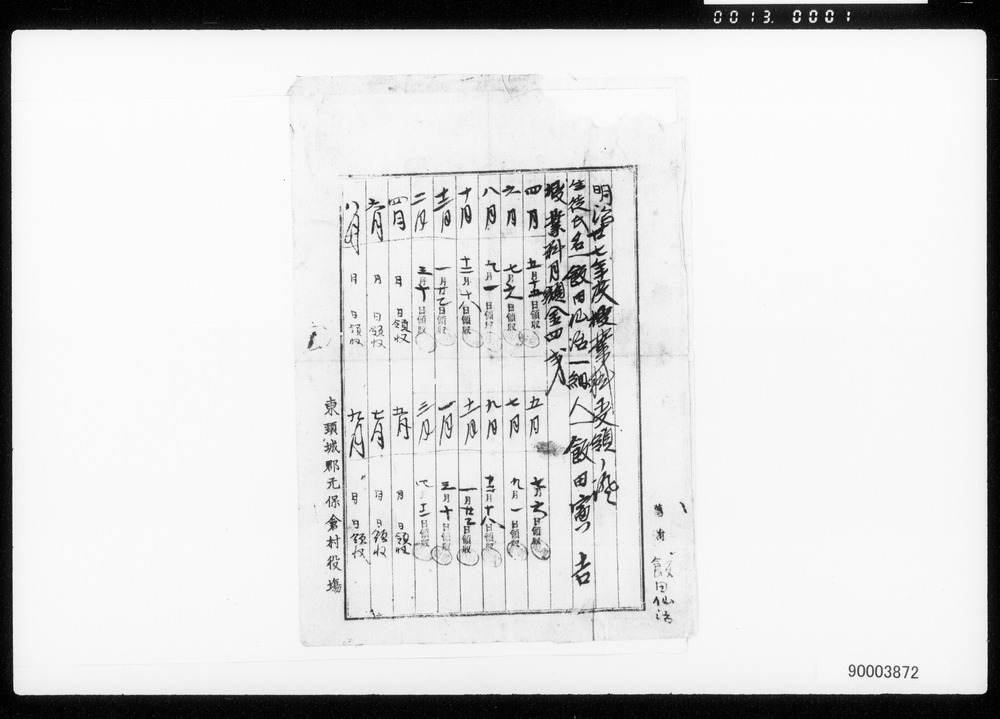 0013.0001
明治廿七年度授業料受領ノ證
生徒氏名 飯田仙治 納人 飯田寅吉
授業料月額金四戔
四月 五月十五日領収 五月 七月六日領収
六月 七月六日領収 七月 九月一日領収
八月 九月一日領収 九月 十二月十八日領収
十月 十二月十八日領収 十一月 一月廿二日領収
十二月 一月廿二日領収 一月 三月十日領収
二月 三月十日領収 三月
四月 月 日領収 五月 月 日領収
六月 月 日領収 七月 月 日領収
八月 月 日領収 九月 月 日領収
東頸城郡元保倉村役場
飯田仙治
90003872